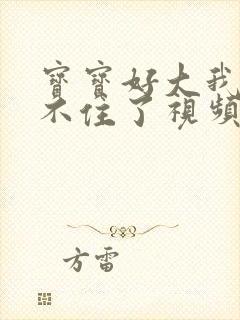 寶寶好大我
不住了視頻
方雷